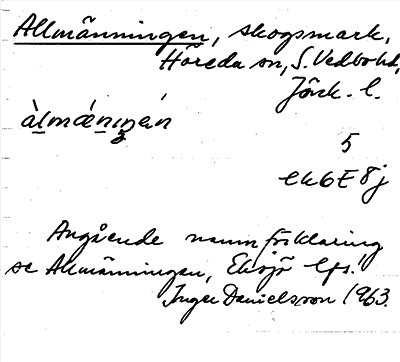 Allmänningen, skogsmark,
Höreda sn, S. Vedbo hd,
Jönk. l.
àlmǽniŋen
5
ek 6E 8j
Angående namnförklaring
se Allmänningen, Eksjö lfs!
Inger Danielsson 1963.